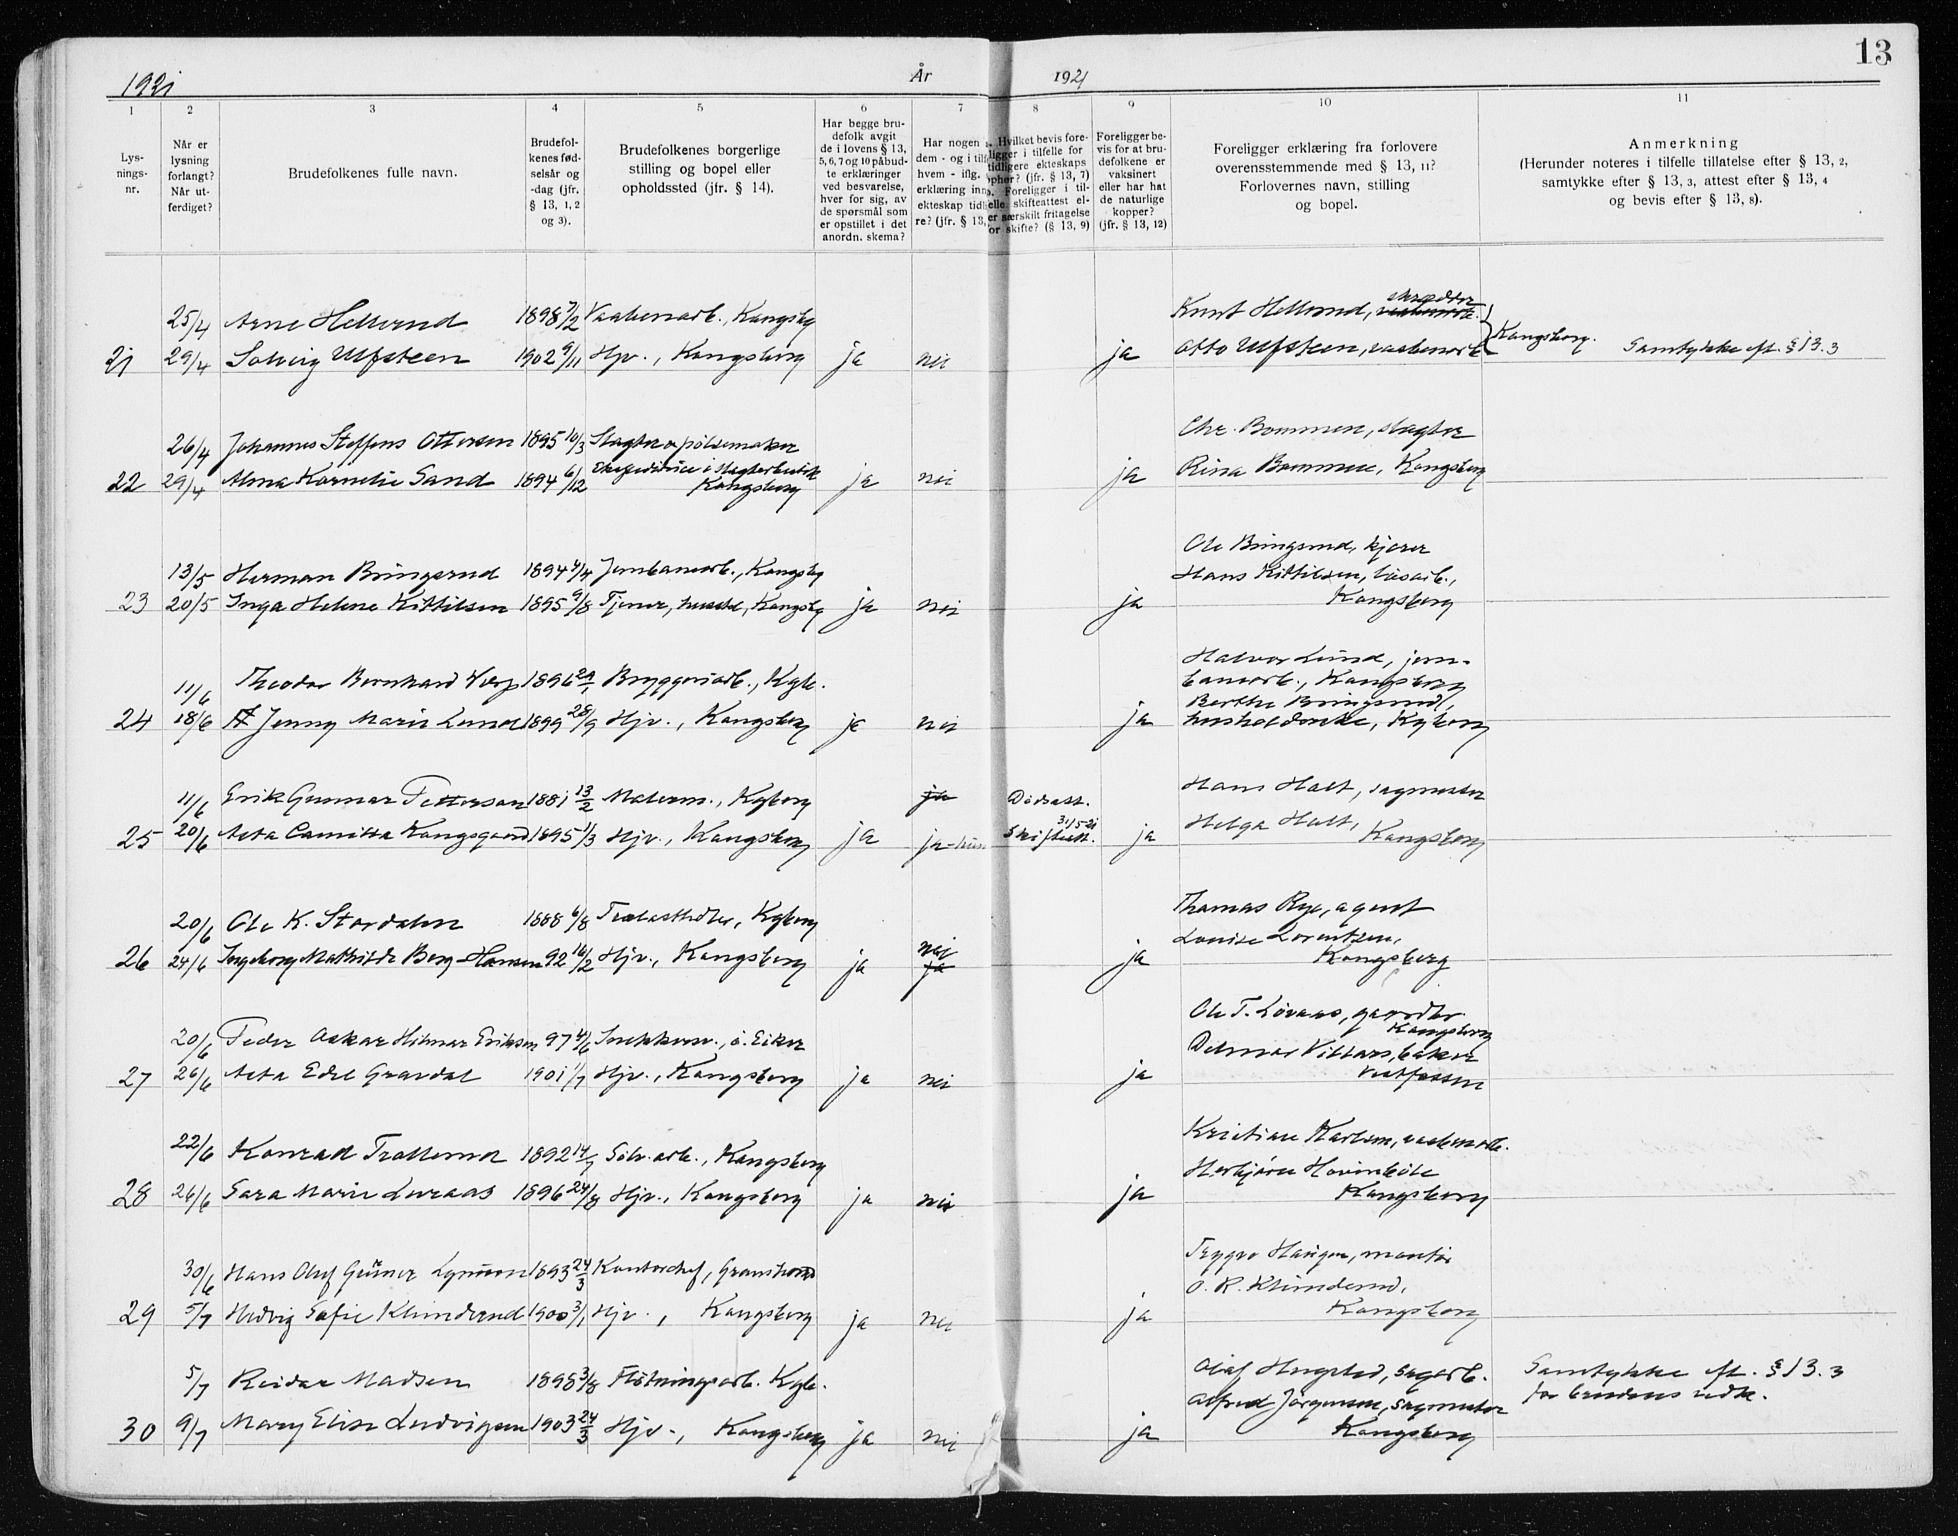 1921 År 1921 13
1 2 3 4 5 6 7 8 9 10 11
Lys-
nings-
nr.
Når er
lysning
forlangt?
Når ut-
ferdiget?
Brudefolkenes fulle navn.
Brudefol-
kenes fød-
selsår og
-dag (jfr.
§ 13, 1, 2
og 3).
Brudefolkenes borgerlige
stilling og bopel eller
opholdssted (jfr. § 14).
Har begge bru-
defolk avgit
de i lovens § 13,
5, 6, 7 og 10 påbud-
te erklæringer
ved besvarelse,
hver for sig, av
de spørsmål som
er opstillet i det
anordn. skema?
Har nogen
dem - og i tilf
hvem - iflg.
erklæring inn
ekteskap tidl
re? (jfr. § 13,
Hvilket bevis fore-
ligger i tilfelle for
tidligere ekteskaps
opher? (jfr. § 13, 7)
Foreligger i til-
elle skifteattest el-
er særskilt fritagelse
or skifte? (§ 13, 9)
Foreligger be-
vis for at bru-
defolkene er
vaksinert
eller har hat
de naturlige
kopper?
(jfr. § 13, 12)
Foreligger erklæring fra forlovere
overensstemmende med § 13, 11?
Forlovernes navn, stilling
og bopel.
Anmerkning
(Herunder noteres i tilfelle tillatelse efter § 13, 2,
samtykke efter § 13, 3, attest efter § 13, 4
og bevis efter § 13, 8).
25/4 Arne Hellerud 1898 7/2 Vaabenarb., Kongsbg Knut Hellerud, skrædder
21 29/4 Solveig Ulfsteen 1902 9/11 Hjv., Kongsberg ja nei ja Otto Ulfsteen, vaabenarb. Kongsberg. Samtykke eft. §13.3
26/4 Johannes Steffens Ottersen 1895 10/3 Slagter o pölsemaker Chr. Bommen, slagter
22 29/4 Alma Kornelie Sand 1894 6/12 Ekspeditrice i slagterbutik ja nei ja Rina Bommen, Kongsberg
Kongsberg
13/5 Herman Bringsrud 1894 4/4 Jernbanearb., Kongsbg Ole Bringsrud, kjører
Hans Kittilsen, løsarb.,
23 20/5 Inga Helene Kittilsen 1895 9/8 Tjener, , Kongsbg ja nei ja Kongsberg
Halvor Lund, jern-
11/6 Theodor Bernhard Værp 1896 Bryggeriarb., Kgb. banearb., Kongsberg
Berthe Bringsrud,
24 18/6 Jenny Marie Lund 1899 28/9 Hjv., Kongsberg ja nei ja husholderske, Kgberg
11/6 Erik Gunnar Petterson 1881 13/2 Malerm., Kgberg ja Dødsatt. Hans Holt, sagmester
25 20/6 Asta Camilla Kongsgaard 1895 1/3 Hjv., Kongsberg ja ja Skifteatt. 31/5-21 ja Helga Holt, Kongsberg
20/6 Ole K. Stordalen 1888 6/8 Trælasthdler, Kgberg Thomas Rye, agent
Louise Lorentzen,
26 24/6 Ingeborg Mathilde Berg-Hansen 92 16/2 Hjv., Kongsberg ja nei ja ja Kongsberg
20/6 Peder Oskar Hilmar Eriksen 97 4/6 Snekkersv., ö. Eiker Ole T. Löver, gaardbr.
Kongsberg
27 26/6 Asta Edel Gravdal 1901 1/7 Hjv., Kongsberg ja nei ja Delmar Villars, baker
Vestfossen
22/6 Konrad Trollerud 1892 14/7 Sölv.arb., Kongsberg Kristian Karlsen, vaabenarb.
Herbjörn Hovinböle
28 26/6 Sara Marie Luraas 1896 24/8 Hjv., Kongsberg ja nei ja Kongsberg
30/6 Hans Olaf Gunnar 1893 24/3 Kontorchef, Trygve Haugen, montör
O. R. Klunderud,
29 5/7 Hedvig Sofie Klunderud 1900 3/1 Hjv., Kongsberg ja nei ja Kongsberg
5/7 Reidar Madsen 1898 3/8 Flötningsarb. Kgb. Olaf Hengsted, sagarb. Samtykke eft. §13.3
for brudens vedk.
30 9/7 Mary Elise Ludvigsen 1903 24/3 Hjv., Kongsberg ja nei ja Alfred Jörgensen, sagmester
Kongsberg